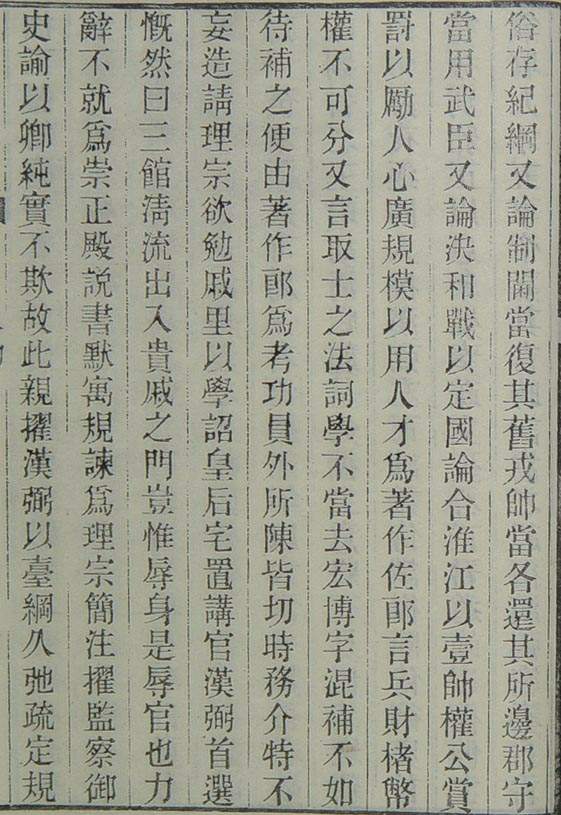 俗存紀綱又論制閫當復其舊戎帥當各還其所邊郡守
當用武臣又論決和戰以定國論合淮江以壹帥權公賞
罰以勵人心廣規模以用人才爲著作佐郎言兵財楮幣
權不可分又言取士之法詞學不當去宏博字混補不如
待補之便由著作郎爲考功員外所陳皆切時務介特不
妄造請理宗欲勉戚里以學詔皇后宅置講官漢弼首選
慨然曰三館淸流出入貴戚之門豈惟辱身是辱官也力
辭不就爲崇正殿説書默寓規諫爲理宗簡注擢監察御
史諭以卿純實不欺故此親擢漢弼以臺綱久弛疏定規